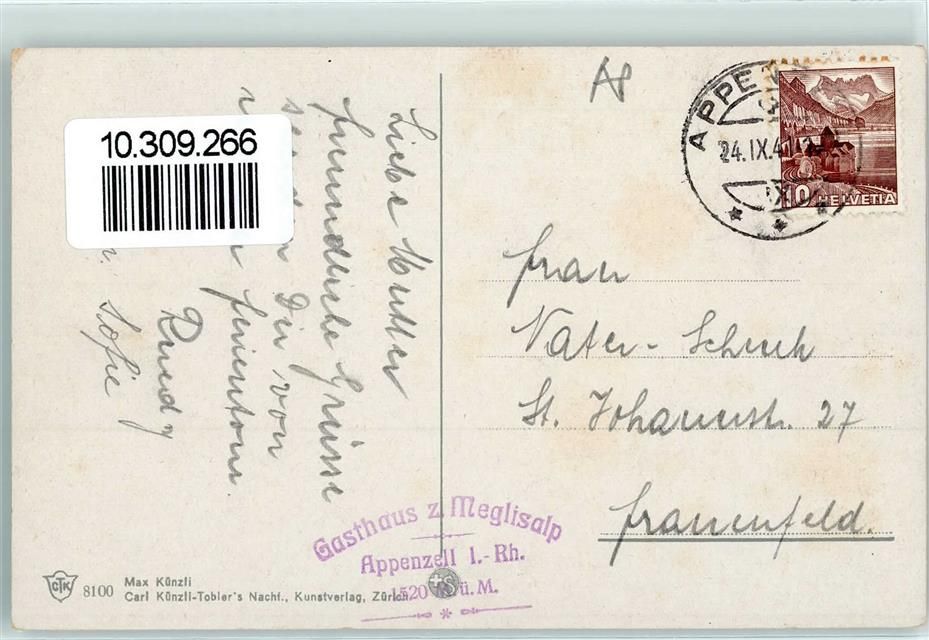 10.309.266
Liebe Mutter
freundliche Grüsse
Dir von
ferientour
Ruedy
Sofie
APPE
24.IX.4
10 HELVETIA
Frau
Vater-Schuh
St. Johannstr. 27
Frauenfeld.
Gasthaus z. Meglisalp
Appenzell I.-Rh.
1520 M. ü. M.
CTK 8100 Max Künzli
Carl Künzli-Tobler's Nachf., Kunstverlag, Zürich